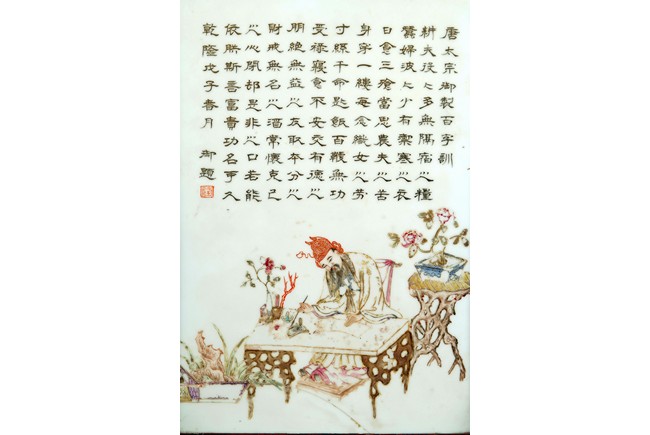 唐太宗御製百字訓
耕夫役〻多無隔宿之糧
蠶婦波〻少有禦寒之衣
日食三飧當思農夫之苦
身穿一縷每念織女之勞
寸絲千命匙飯百鞭無功
受祿寢食不安交有德之
朋絕無益之友取本分之
財戒無名之酒常懷克己
之心閉却是非之口若能
依朕斯善富貴功名可久
乾隆戊子香月 御題